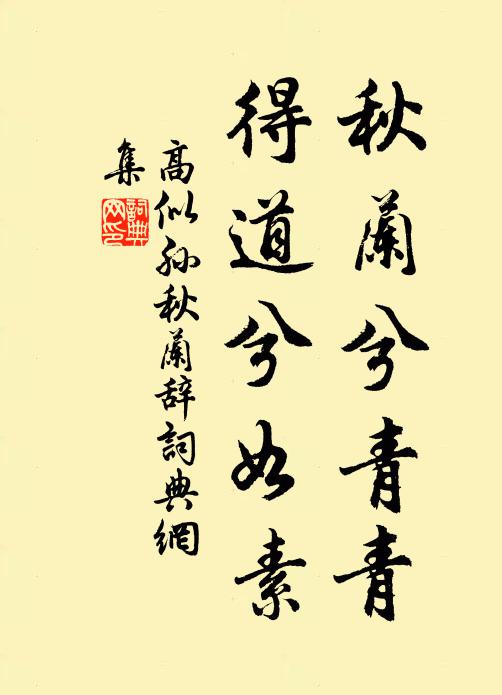 秋蘭兮青青
得道兮如素
高似孙秋蘭辞詞典網
集
詞典網印